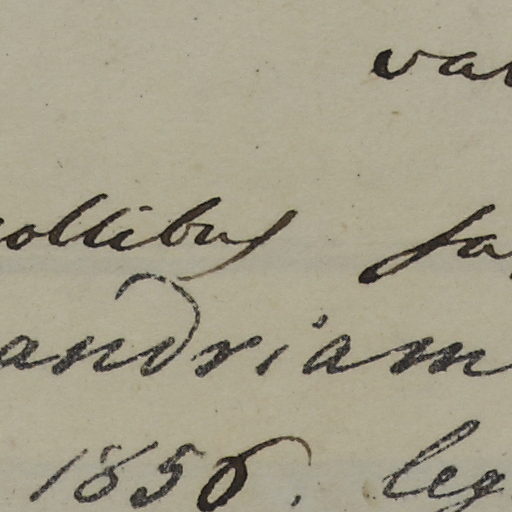 var
collibus sa
andriam
1856. leg